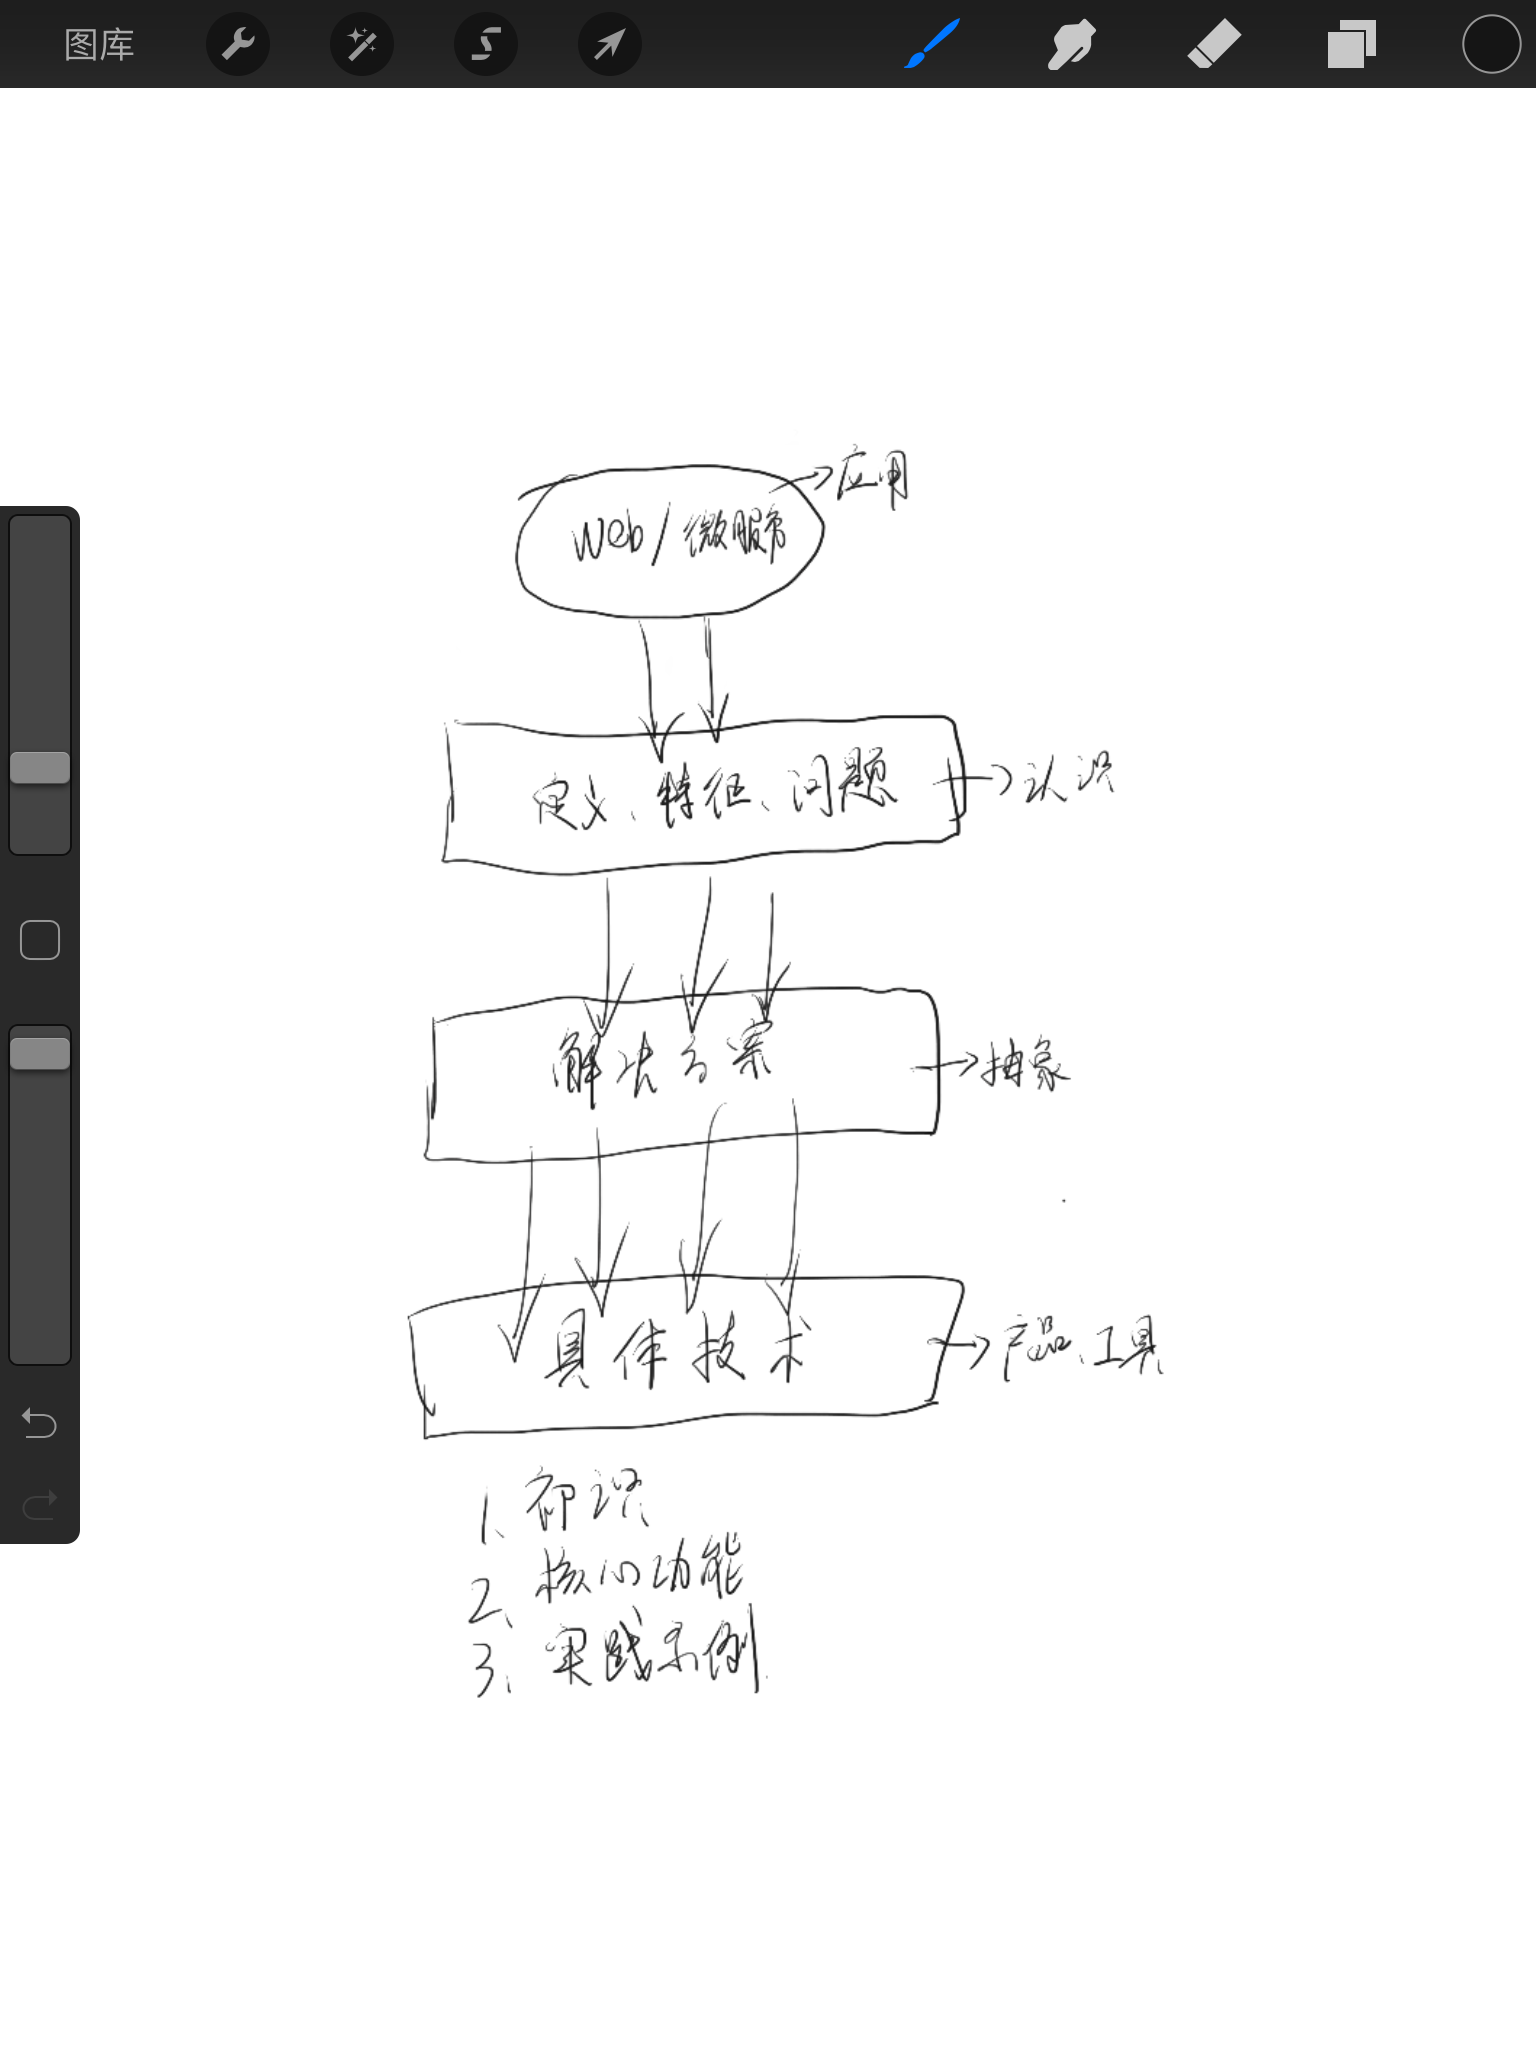 图库
Web/微服务
→应用
定义、特征、问题
→认识
解决方案
→抽象
具体技术
→产品、工具
1、
2、核心功能
3、实践示例